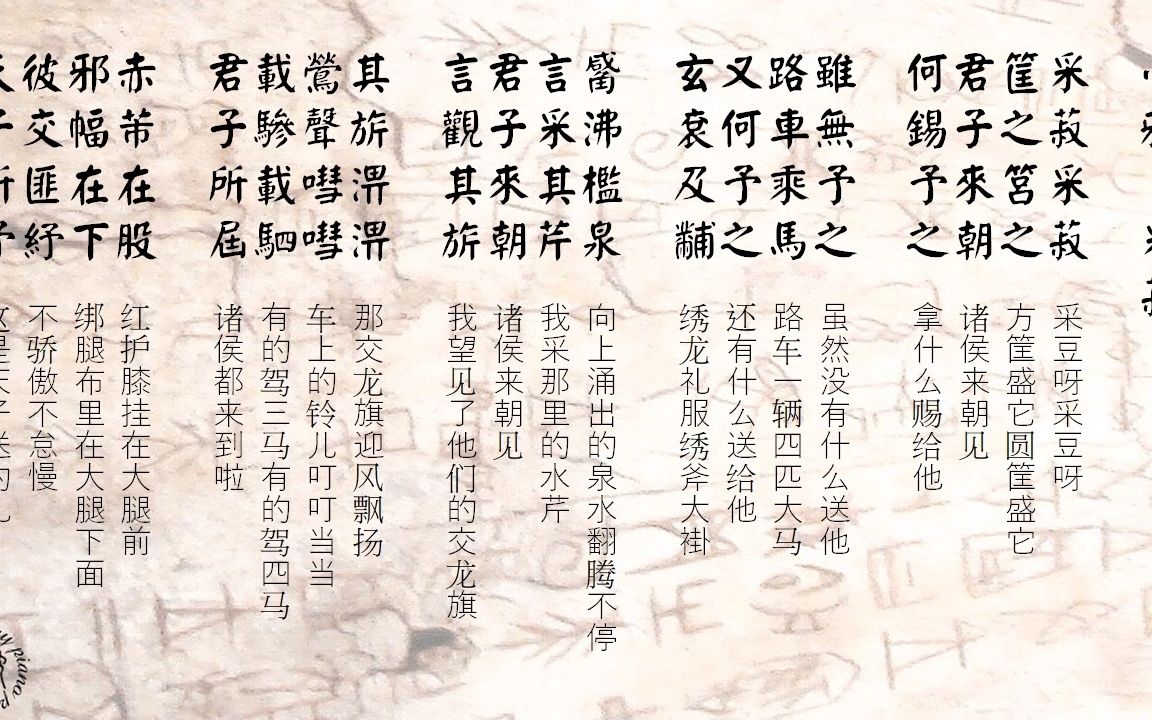 采菽采菽
筐之筥之
君子來朝
何錫予之
采豆呀采豆呀
方筐盛它圆筐盛它
诸侯来朝见
拿什么赐给他
雖無予之
路車乘馬
又何予之
玄袞及黼
虽然没有什么送他
路车一辆四匹大马
还有什么送给他
绣龙礼服绣斧大褂
觱沸檻泉
言采其芹
君子來朝
言觀其旂
向上涌出的泉水翻腾不停
我采那里的水芹
诸侯来朝见
我望见了他们的交龙旗
其旂淠淠
鶯聲嘒嘒
載驂載駟
君子所屆
那交龙旗迎风飘扬
车上的铃儿叮叮当当
有的驾三马有的驾四马
诸侯都来到啦
赤芾在股
邪幅在下
彼交匪紓
红护膝挂在大腿前
绑腿布里在大腿下面
不骄傲不怠慢
piano